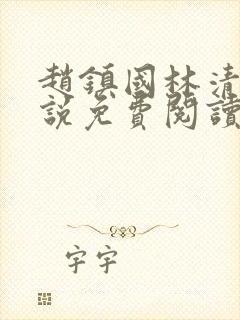 趙鎮國林清
說免費閱讀
字字